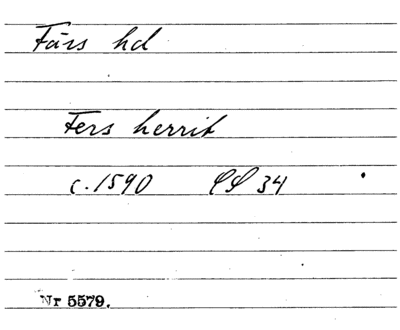 Färs hd
Fers herrit
c. 1590 PS 34
Nr 5579.